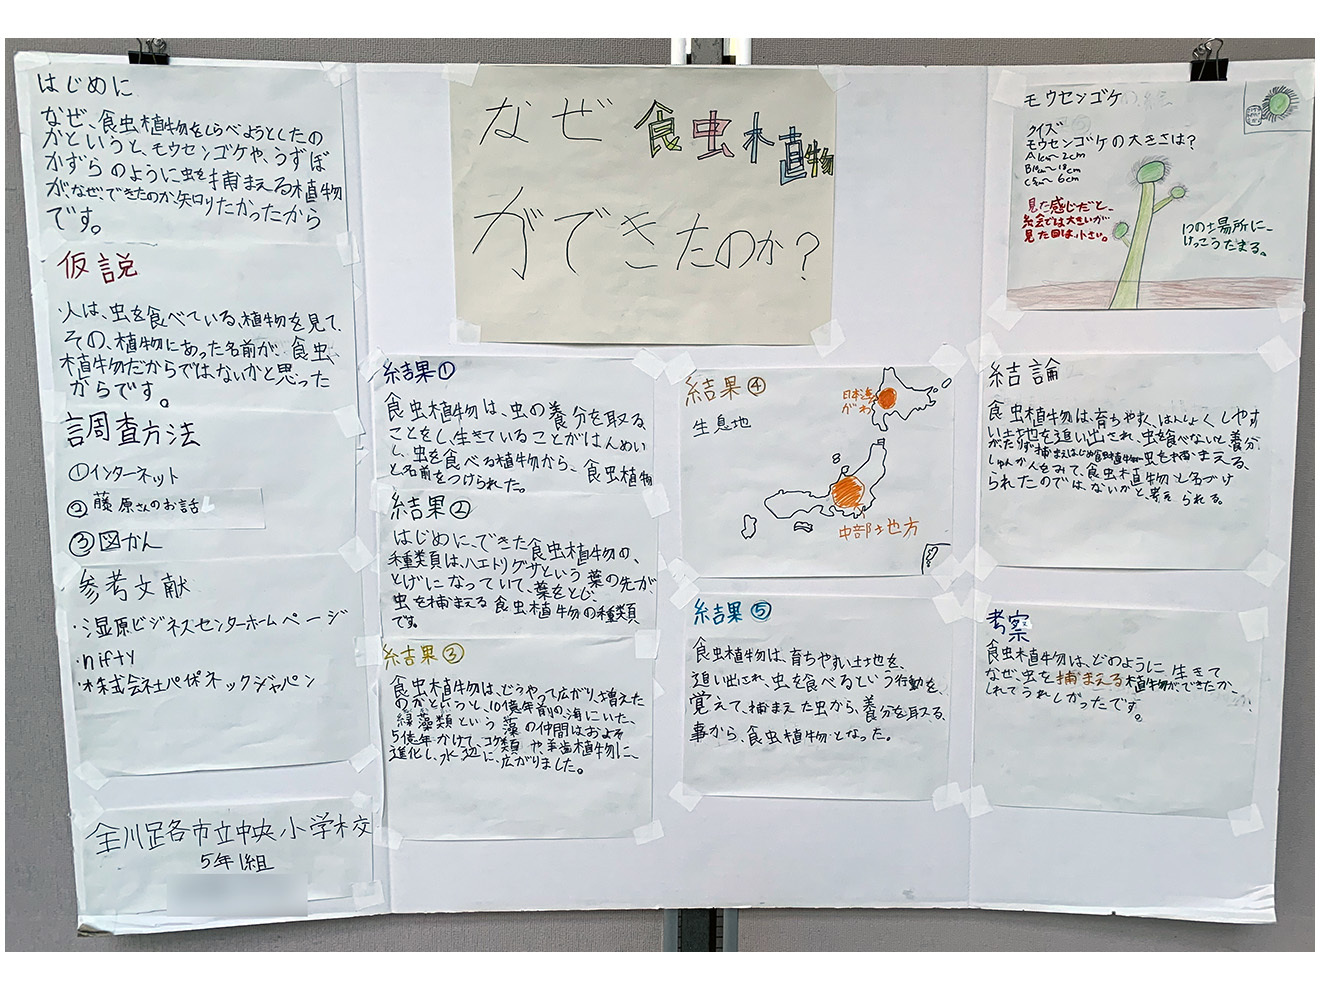 はじめに
なぜ、食虫植物をしらべようとしたの
かというと、モウセンゴケや、うずぼ
かずらのように虫を捕まえる植物
が、なぜ、できたのか知りたかったから
です。
仮説
・人は、虫を食べている、植物を見て、
その、植物にあった名前が、食虫
植物だからではないかと思った
からです。
調査方法
①インターネット
②藤原さんのお話
③図かん
参考文献
・湿原ビジネスセンターホームページ
・nifty
・株式会社パイオネックジャパン
釧路市立中央小学校
5年1組
なぜ食虫植物
ができたのか?
結果①
食虫植物は、虫の養分を取る
ことをし、生きていることがはんめい
し、虫を食べる植物から、食虫植物
と名前をつけられた。
結果②
はじめに、できた食虫植物の、
種類は、ハエトリグサという葉の先が、
とげになっていて、葉をとじ、
虫を捕まえる食虫植物の種類
です。
結果③
食虫植物は、どうやって広がり、増えた
のかというと、10億年前の海にいた、
緑藻類という藻の仲間はおよそ
5億年かけて、コケ類や羊歯植物に
進化し、水辺に、広がりました。
結果④
生息地
日本海
がわ
中部地方
結果⑤
食虫植物は、育ちやすい土地を、
追い出され、虫を食べるという行動を、
覚えて、捕まえた虫から、養分を取る、
事から、食虫植物となった。
モウセンゴケの絵
クイズ
モウセンゴケの大きさは?
見た感じだと、
絵では大きいが
見た目は小さい。
1つの場所に、
けっこうたまる。
結論
食虫植物は、育ちやすく、はんしょくしやす
い土地を追い出され、虫を食べないと養分
がたりず捕まえはじめ食虫植物が虫を捕まえる、
しゅんかん人をみて、食虫植物と名づけ
られたのではないかと、考えられる。
考察
食虫植物は、どのように生きて
なぜ、虫を捕まえる植物ができたか、
しれてうれしかったです。